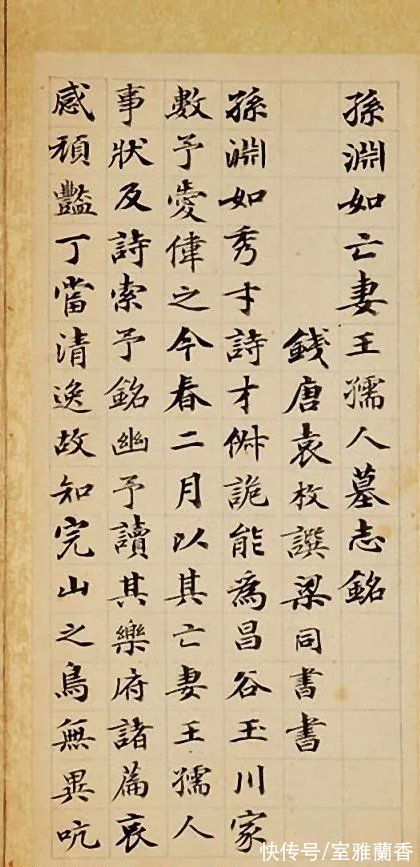 孫淵如亡妻王孺人墓志銘
錢唐袁枚譔梁同書書
孫淵如秀才詩才俶詭能爲昌谷玉川家
數予愛偉之今春二月以其亡妻王孺人
事狀及詩索予銘幽予讀其樂府諸篇哀
感頑豔丁當清逸故知完山之鳥無異吭
快传号/室雅蘭香